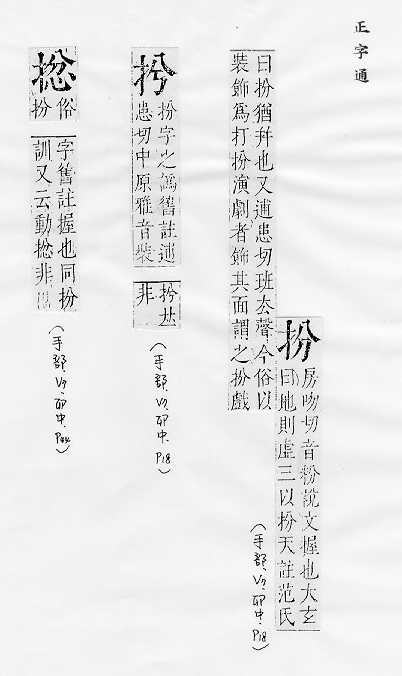 正字通
扮
房吻切音粉說文握也大玄
曰地則虛三以扮天註范氏
曰扮猶幷也又逋患切班去聲今俗以
裝飾爲打扮演劇者飾其面謂之扮戲
(手部、V7、卯中、P18)
扮字之譌舊註逋
患切中原雅音裝
非
(手部、V7、卯中、P18)
捴
俗
扮
字舊註握也同扮
訓又云動捴非
(手部、V7、卯中、P44)